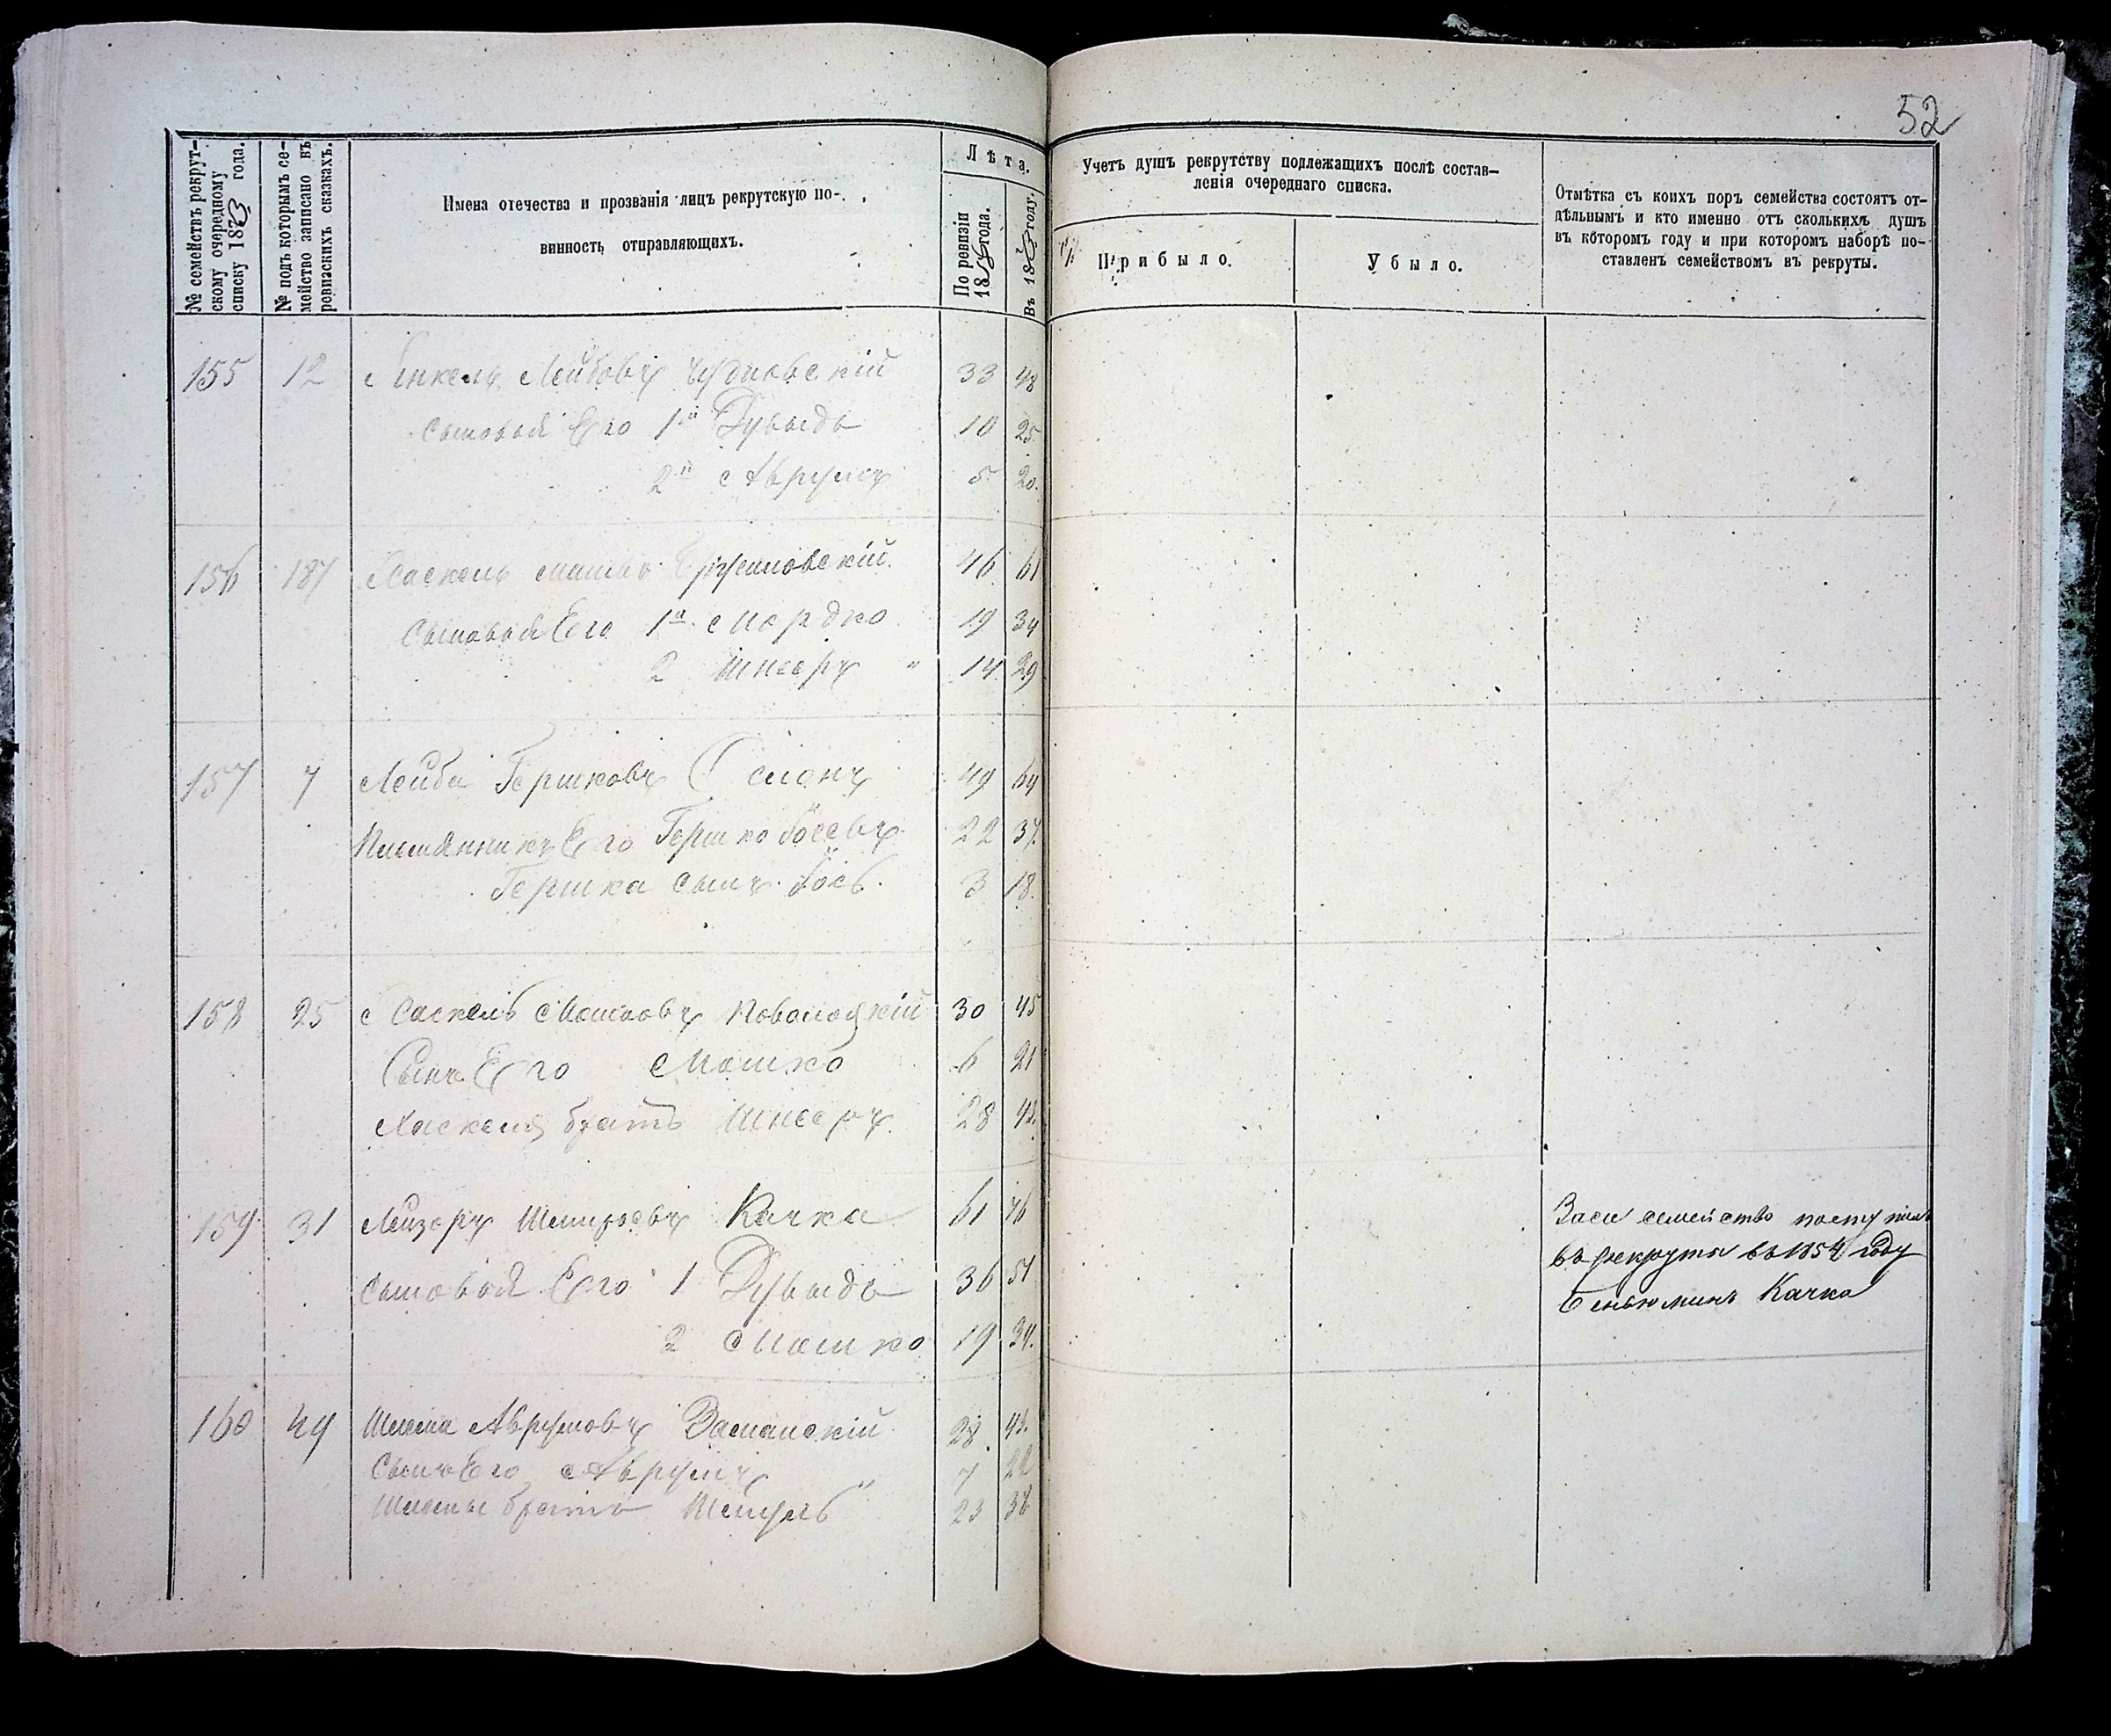 52
№ семействъ рекрут-
скому очередному
списку 1873 года.
№ подъ которымъ се-
мейство записано въ
ревизскихъ сказкахъ.
Имена отечества и прозванія лицъ рекрутскую по-
винность отправляющихъ.
Лѣта.
По ревизіи
1858 года.
Въ 1873 году.
Учетъ душъ рекрутству подлежащихъ послѣ состав-
ленія очереднаго списка.
Прибыло.
Убыло.
Отмѣтка съ коихъ поръ семейства состоятъ от-
дѣльнымъ и кто именно отъ сколькихъ душъ
въ которомъ году и при которомъ наборѣ по-
ставленъ семействомъ въ рекруты.
155 12 Янкель Лейбовъ Чудновскій 33 48
Сыновья Его 1й Дувыдъ 10 25.
2й Аврумъ 5 20.
156 187 Хаскель 46 61
Сыновья Его 1й Мордко 19 34
2 Шнееръ " 14 29
157 7 Лейба Гершковъ 49 64
Племянникъ Его Гершко Іосевъ 22 37.
Гершка сынъ Іось. 3 18.
158 25 Хаскель Мошковъ Поволоцкій 30 45
Сынъ Его Мошко 6 21
Хаскеля братъ Шнееръ 28 43.
159 31 Лейзеръ Качка 61 76
Сыновья Его 1 Дувыдъ 36 51
2 Мошко 19 34.
За семейство
въ рекруты въ 1854 году
Беньюминъ Качка
160 49 Шлема Аврумовъ 28 43.
Сынъ Его Аврумъ " 7 22
Шлемы братъ 23 38